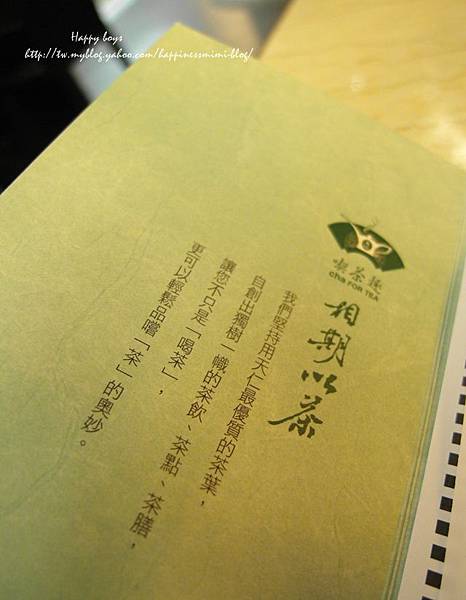 Happy boys
http://tw.myblog.yahoo.com/happinessmimi-blog/
喫茶趣
cha FOR TEA
相期以茶
我們堅持用天仁最優質的茶葉，
自創出獨樹一幟的茶飲、茶點、茶膳，
讓您不只是「喝茶」，
更可以輕鬆品嚐「茶」的奧妙。